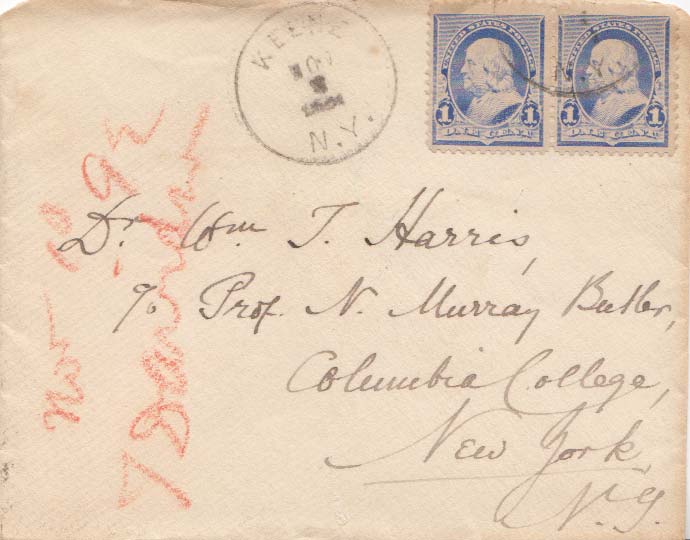 KEENE
NOV
N.Y.
UNITED STATES POSTAGE
1 1
ONE CENT
UNITED STATES POSTAGE
1 1
ONE CENT
N.Y.
Dr. Wm T. Harris,
% Prof. N. Murray Butler,
Columbia College,
New York,
N.Y.
Nov 10 92